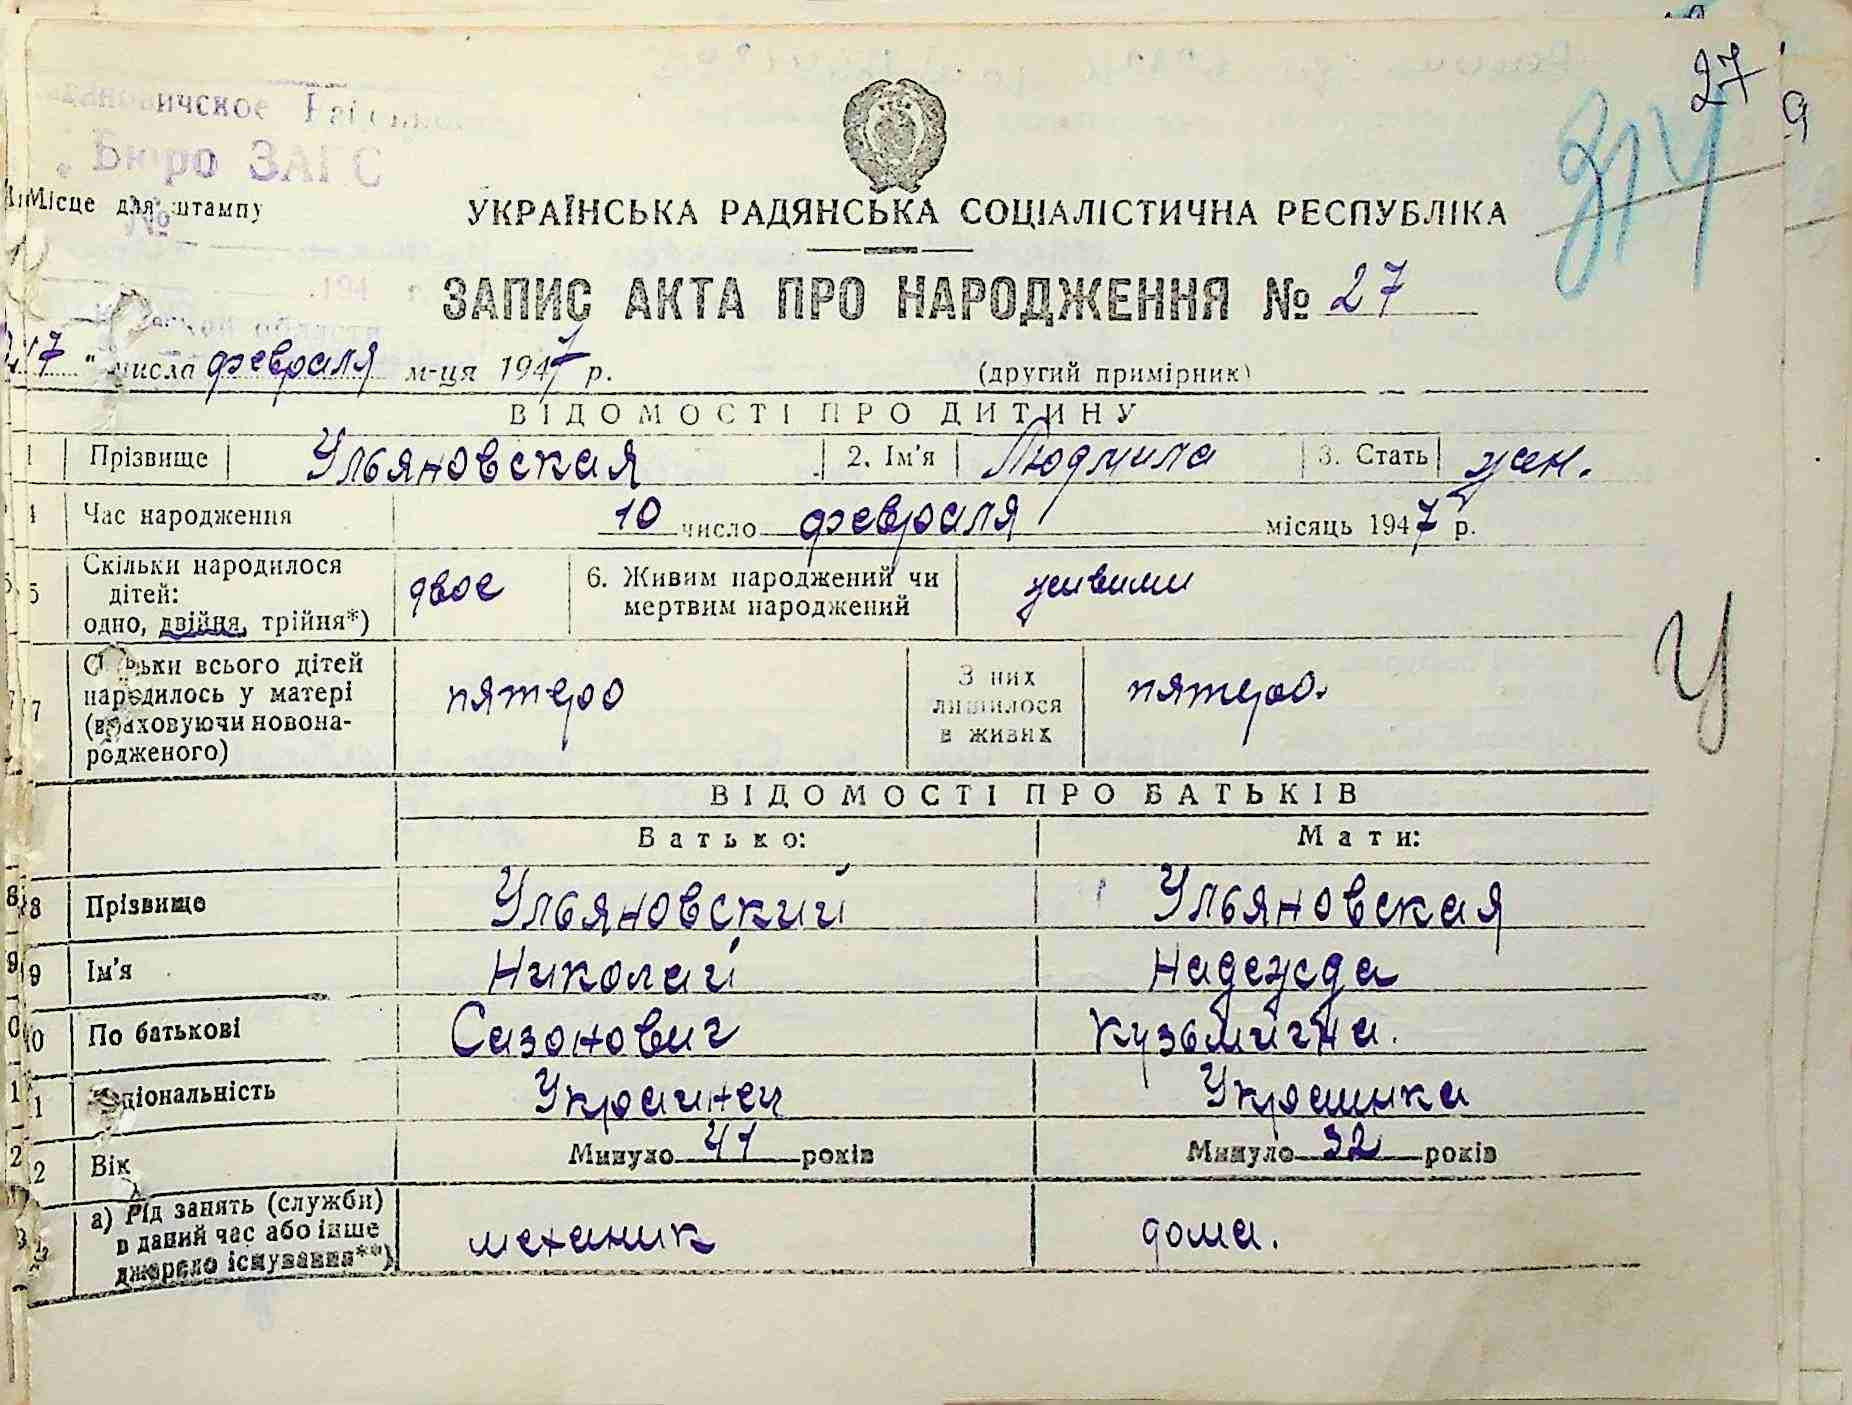 27
9
314
Бюро ЗАГС
Місце для штампу
№
194
УКРАЇНСЬКА РАДЯНСЬКА СОЦІАЛІСТИЧНА РЕСПУБЛІКА
ЗАПИС АКТА ПРО НАРОДЖЕННЯ № 27
17 " числа февраля м-ця 1947 р. (другий примірник)
ВІДОМОСТІ ПРО ДИТИНУ
1 Прізвище Ульяновская 2. Ім'я Людмила 3. Стать жен.
4 Час народження 10 число февраля місяць 1947 р.
5 Скільки народилося дітей: одно, двійня, трійня*) двое 6. Живим народжений чи мертвим народжений живыми
7 Скільки всього дітей народилось у матері (враховуючи новонародженого) пятеро З них лишилося в живих пятеро.
У
ВІДОМОСТІ ПРО БАТЬКІВ
Батько: Мати:
8 Прізвище Ульяновский Ульяновская
9 Ім'я Николай Надежда
0 По батькові Сазонович Кузьмична.
1 Національність Украинец Украинка
2 Вік Минуло 41 років Минуло 32 років
а) Рід занять (служби) в даний час або інше джерело існування**) механик дома.